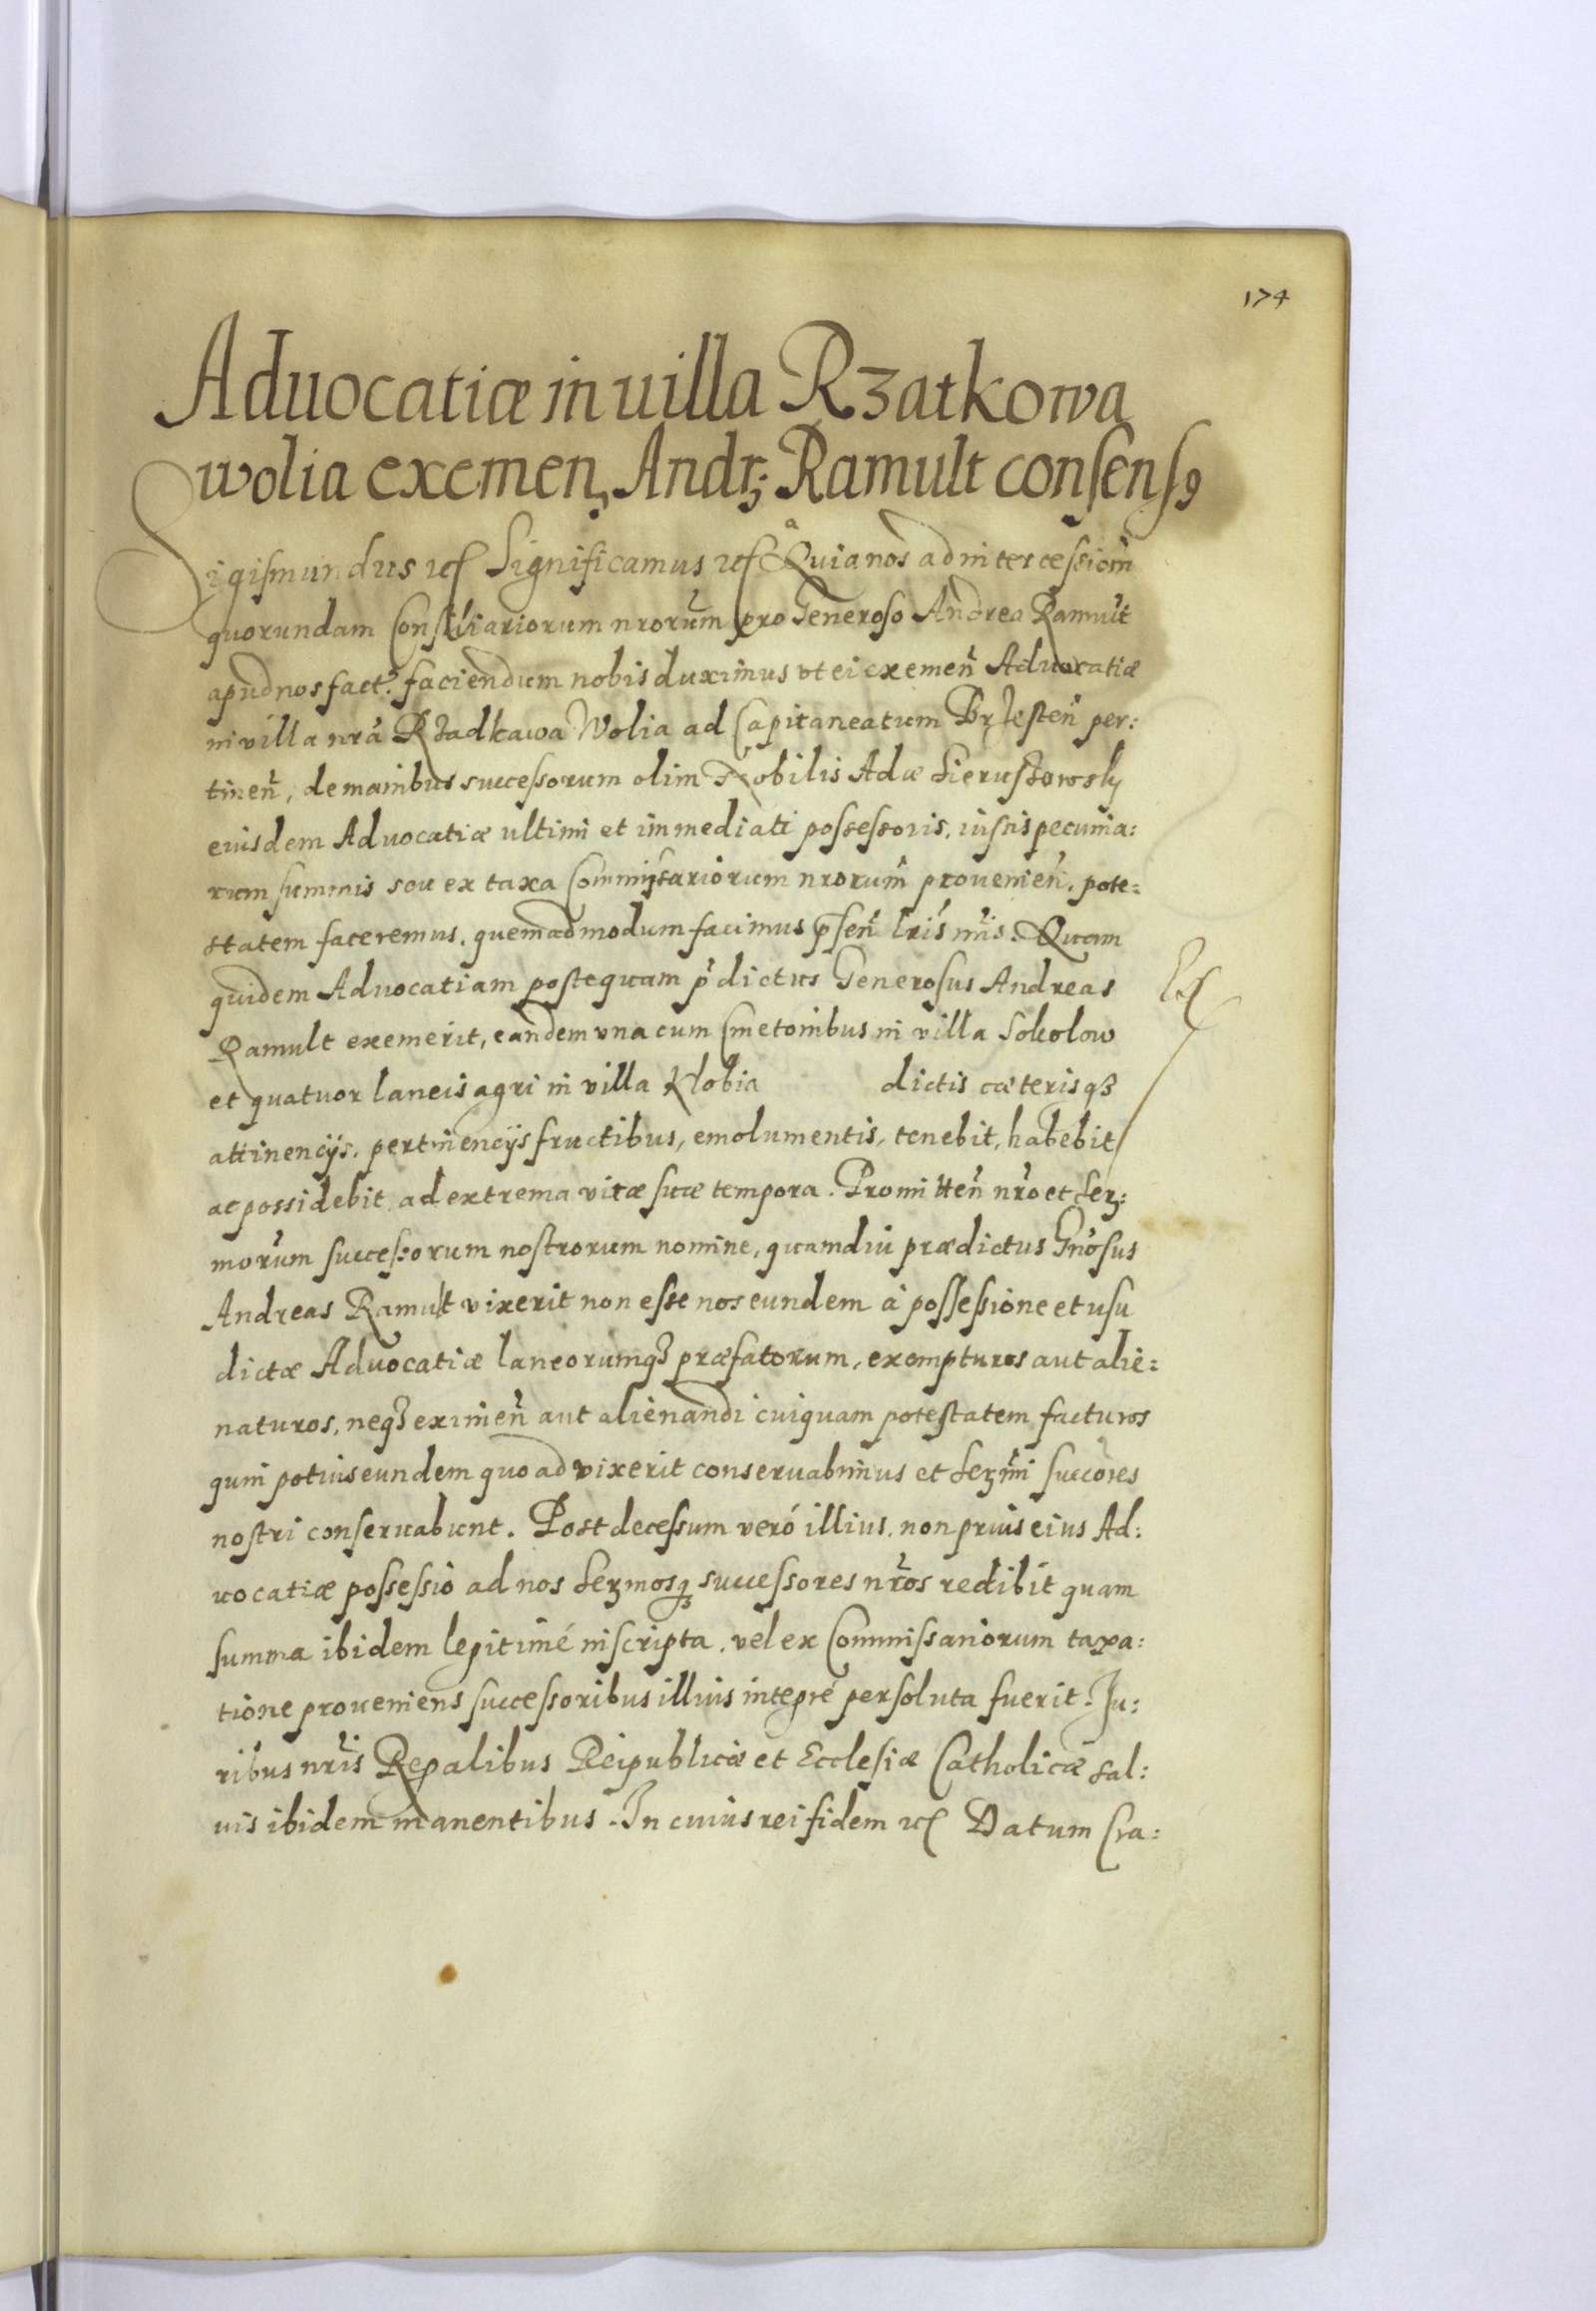 174
Aduocatiæ in uilla Rzatkowa
wolia exemen, Andr; Ramult consens9
Sigismundus etc Significamus etc Quia nos ad intercessiom̃
quorundam Consiliariorum nrorum̃ pro Generoso Andrea Ramult
apud nos fact: faciendum nobis duximus vt ei exemen̄ Aduocatiæ
in villa nrã Rzadkawa Wolia ad Capitaneatum Brzesten̄ per:
tinen̄, de manibus successorum olim Nobilis Adæ
eiusdem Aduocatiæ ultimi et immediati possessoris, iustis pecunia:
rum summis seu ex taxa Commissariorum nrorum̃ prouenien̄. pote:
statem faceremus, quemadmodum facimus p̃sen̄ lr̃is nr̃is. Quam
quidem Aduocatiam postequam p̃dictus Generosus Andreas
Ramult exemerit, eandem vna cum Cmetonibus in villa Sokolow
et quatuor laneis agri in villa Klobia dictis cæterisqȝ
attinencijs, pertinencijs fructibus, emolumentis, tenebit, habebit
ac possidebit ad extrema vitæ suæ tempora. Promitten̄ nr̃o et Serꝫ:
morum̃ successorum nostrorum nomine, quamdiu prædictus Gnõsus
Andreas Ramult vixerit non esse nos eundem à possessione et usu
dictæ Aduocatiæ laneorumqȝ præfatorum, exempturos aut alie:
naturos, neqȝ eximen̄ aut alienandi cuiquam potestatem facturos
quin potius eundem quoad vixerit conseruabimus et Serꝫmi succ̃ores
nostri conseruabunt. Post decessum veró illius, non prius eius Ad:
uocatiæ possessio ad nos Serꝫmosqȝ successores nr̃os redibit quam
summa ibidem legitimé inscripta, vel ex Commissariorum taxa:
tione proueniens successoribus illius integré persoluta fuerit. Iu:
ribus nr̃is Regalibus Reipublicæ et Ecclesiæ Catholicæ sal:
uis ibidem manentibus. In cuius rei fidem etc Datum Cra: